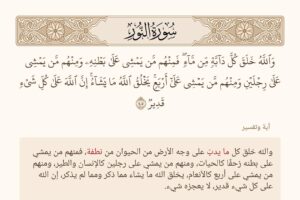 سُورَةُ النُّورِ
وَٱللَّهُ خَلَقَ كُلَّ دَآبَّةٍ مِّن مَّآءٍ ۖ فَمِنْهُم مَّن يَمْشِى عَلَىٰ بَطْنِهِۦ وَمِنْهُم مَّن يَمْشِى
عَلَىٰ رِجْلَيْنِ وَمِنْهُم مَّن يَمْشِى عَلَىٰٓ أَرْبَعٍ ۚ يَخْلُقُ ٱللَّهُ مَا يَشَآءُ ۚ إِنَّ ٱللَّهَ عَلَىٰ كُلِّ شَىْءٍ
قَدِيرٌ ٤٥
آية وتفسير
والله خلق كل ما يدِبّ على وجه الأرض من الحيوان من نطفة، فمنهم من يمشي
على بطنه زحفًا كالحيات، ومنهم من يمشي على رجلين كالإنسان والطير، ومنهم
من يمشي على أربع كالأنعام، يخلق الله ما يشاء مما ذكر ومما لم يذكر، إن الله
على كل شيء قدير، لا يعجزه شيء.